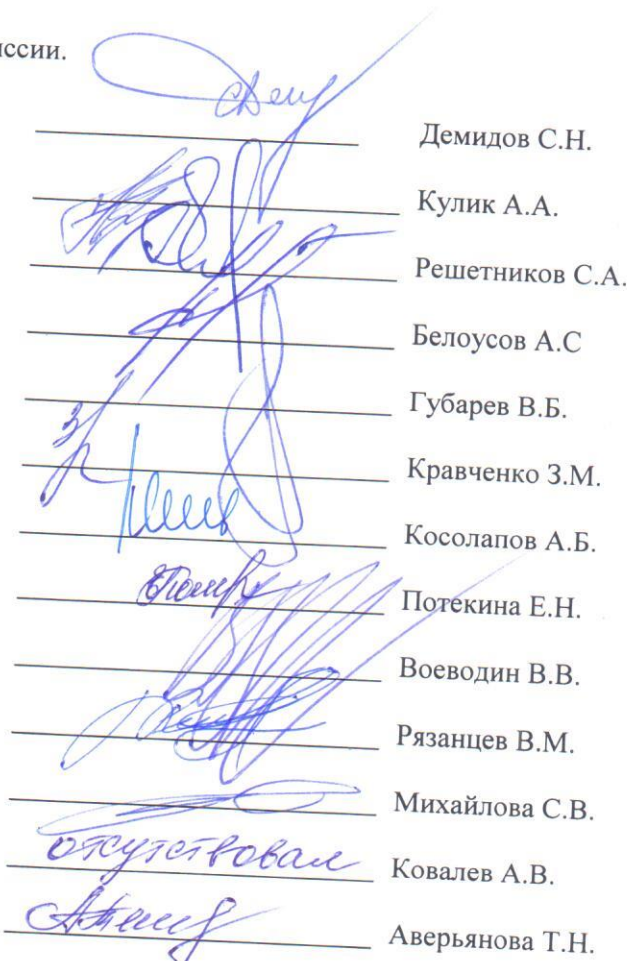 иссии.
Демидов С.Н.
Кулик А.А.
Решетников С.А.
Белоусов А.С
Губарев В.Б.
Кравченко З.М.
Косолапов А.Б.
Потекина Е.Н.
Воеводин В.В.
Рязанцев В.М.
Михайлова С.В.
отсутствовал Ковалев А.В.
Аверьянова Т.Н.